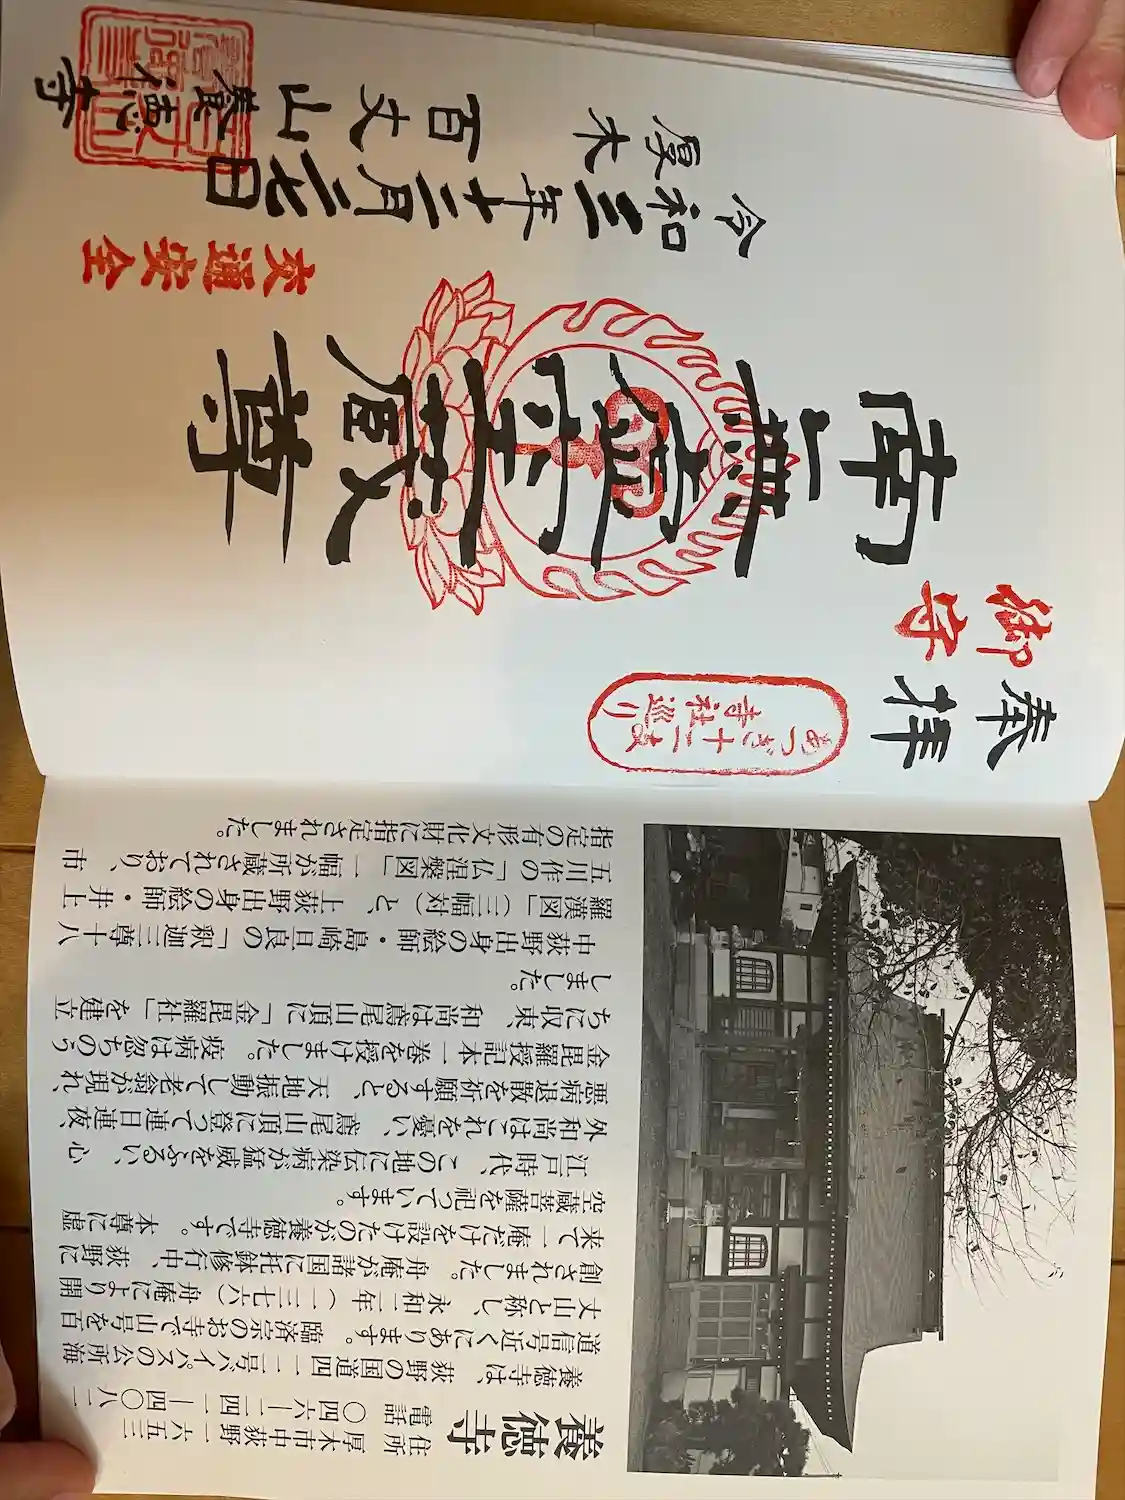 養徳寺
住所　厚木市中荻野一六五三
電話　〇四六―二四一―四〇八二
養徳寺は、荻野の国道四一二号バイパスの公所海
道信号近くにあります。臨済宗のお寺で山号を百
丈山と称し、永和二年（一三七六）舟庵により開
創されました。舟庵が諸国に托鉢修行中、荻野に
来て一庵だけを設けたのが養徳寺です。本尊に虚
空蔵菩薩を祀っています。
江戸時代、この地に伝染病が猛威をふるい、心
外和尚はこれを憂い、鳶尾山頂に登って連日連夜、
悪病退散を祈願すると、天地振動して老翁が現れ、
金毘羅授記本一巻を授けました。疫病は忽ちのう
ちに収束、和尚は鳶尾山頂に「金毘羅社」を建立
しました。
中荻野出身の絵師・島崎旦良の「釈迦三尊十八
羅漢図」（三幅対）と、上荻野出身の絵師・井上
五川作の「仏涅槃図」一幅が所蔵されており、市
指定の有形文化財に指定されました。
奉拝
あつぎ十二支
寺社巡り
御守
南無虚空蔵尊
交通安全
令和三年十二月二七日
厚木
百丈山
養徳寺